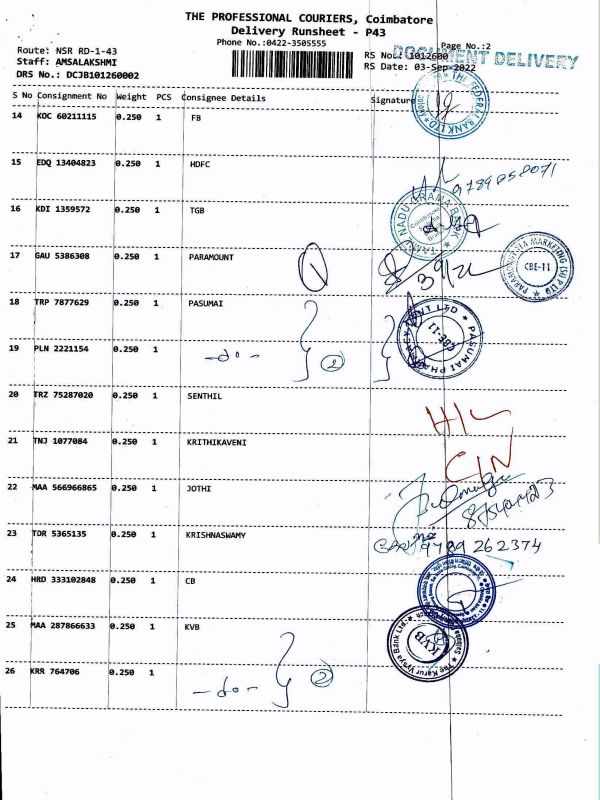 THE PROFESSIONAL COURIERS, Coimbatore
Delivery Runsheet - P43
Phone No.:0422-3505555
Page No.:2
DOCUMENT DELIVERY
Route: NSR RD-1-43
RS No.: 1012600
Staff: AMSALAKSHMI
RS Date: 03-Sep-2022
DRS No.: DCJB101260002
S No Consignment No Weight PCS Consignee Details Signature
14 KOC 60211115 0.250 1 FB
THE FEDERAL BANK LTD
15 EDQ 13404823 0.250 1 HDFC
16 KDI 1359572 0.250 1 TGB
TAMIL NADU GRAMA BANK
17 GAU 5386308 0.250 1 PARAMOUNT 1
3/9/22
MARKETING
CBE-11
18 TRP 7877629 0.250 1 PASUMAI
PASUMAI PHA
PVT LTD
CBE-11
19 PLN 2221154 0.250 1 -do- 2
20 TRZ 75287020 0.250 1 SENTHIL
H/L
21 TNJ 1077084 0.250 1 KRITHIKAVENI
C/N
22 MAA 566966865 0.250 1 JOTHI
23 TDR 5365135 0.250 1 KRISHNASWAMY
9789 262374
24 HRD 333102848 0.250 1 CB
25 MAA 287866633 0.250 1 KVB
The Karur Vysya Bank Ltd.
KVB
26 KRR 764706 0.250 1 -do- 2